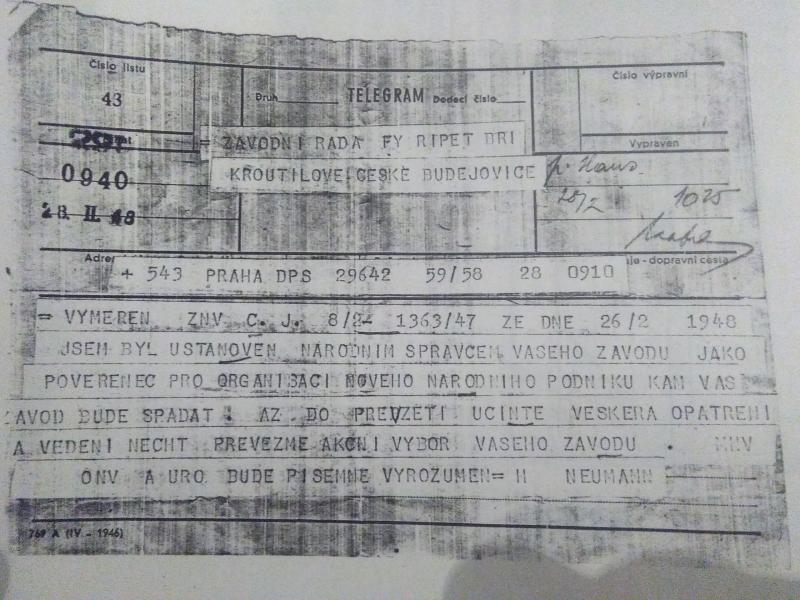 Číslo listu
43
Druh TELEGRAM Dodací číslo
Číslo výpravní
= ZAVODNI RADA FY RIPET BRI
KROUTILOVE CESKE BUDEJOVICE
Vypraven
0940
28. II. 48
10 25
Adres
- dopravní cesta
+ 543 PRAHA DPS 29642 59/58 28 0910
= VYMEREN ZNV C. J. 8/2- 1363/47 ZE DNE 26/2 1948
JSEM BYL USTANOVEN NARODNIM SPRAVCEM VASEHO ZAVODU JAKO
POVERENEC PRO ORGANISACI NOVEHO NARODNIHO PODNIKU KAM VAS
ZAVOD BUDE SPADAT . AZ DO PREVZETI UCINTE VESKERA OPATRENI
A VEDENI NECHT PREVEZME AKCNI VYBOR VASEHO ZAVODU . MNV
ONV A URO BUDE PISEMNE VYROZUMEN= H NEUMANN
769 A (IV - 1946)